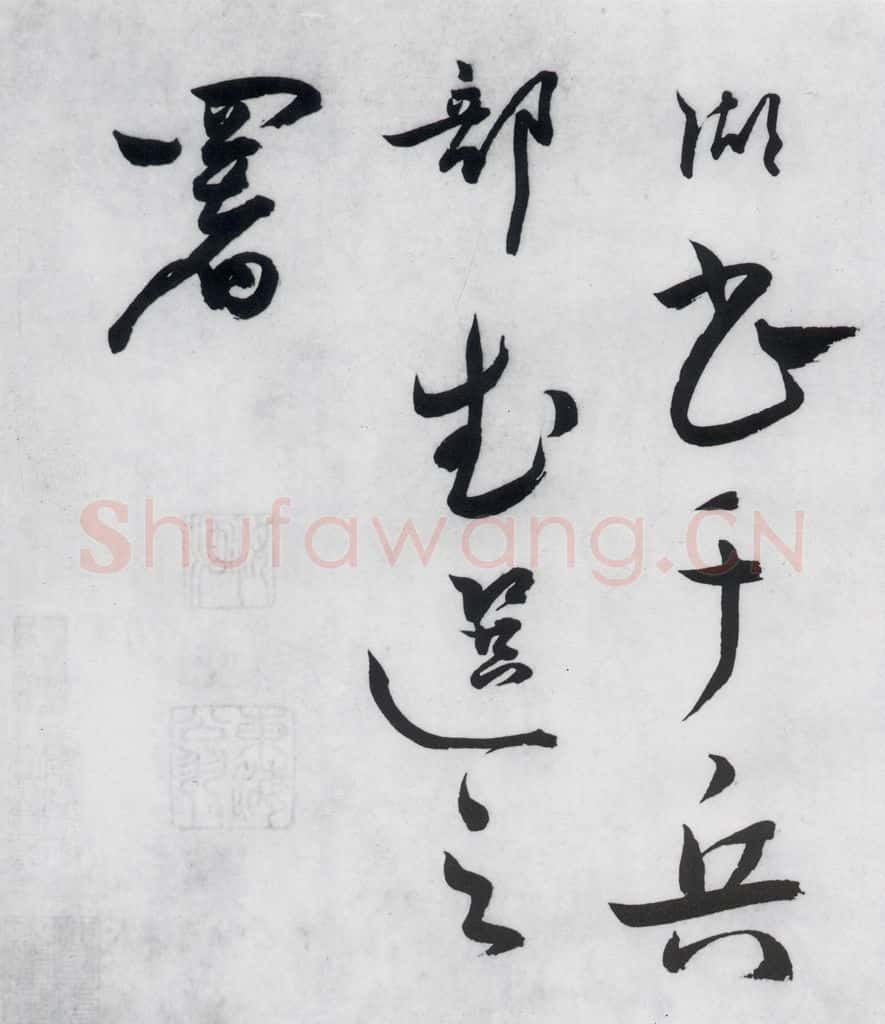 湖书于兵
部武选之
署
Shufawang.CN